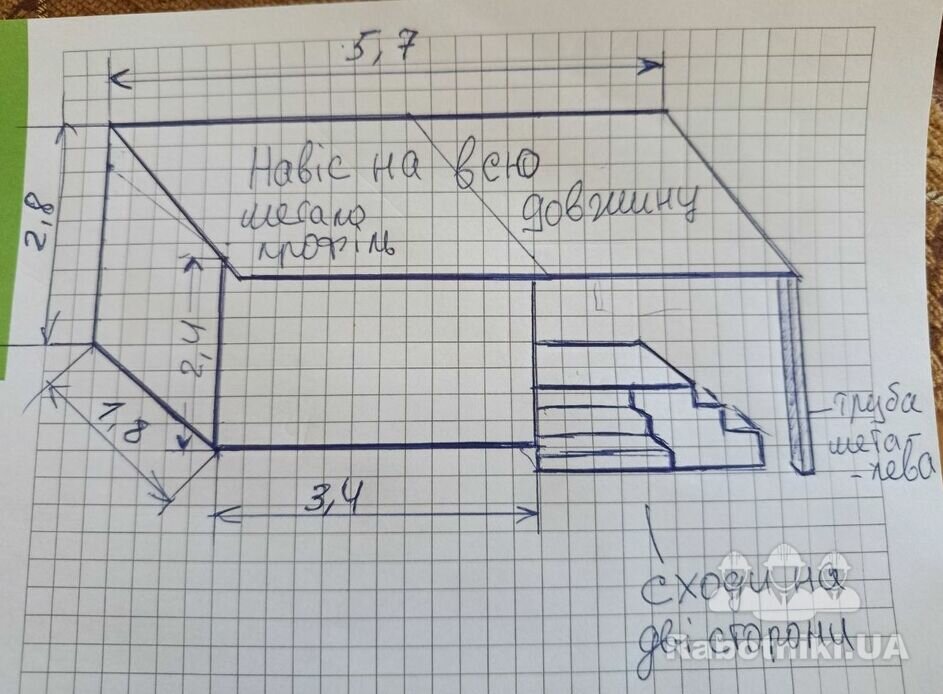 5,7
Навіс на всю
довжину
метало
профіль
2,8
2,4
1,8
3,4
труба
метал
-лева
сходи на
дві сторони
Rabotniki.UA